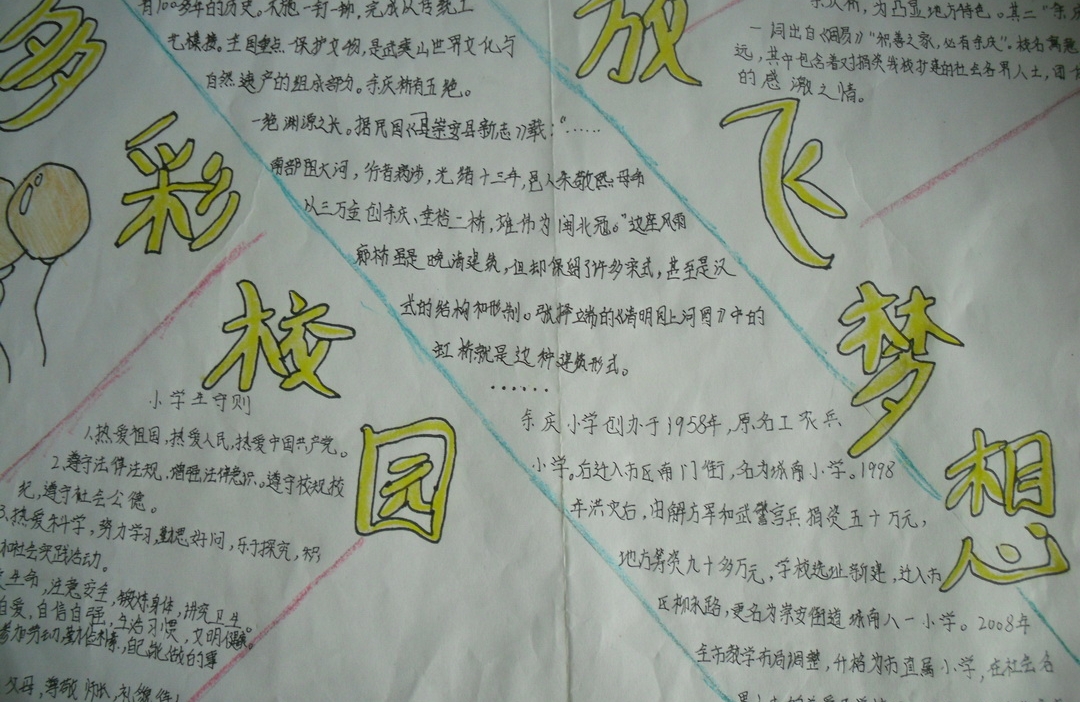 多彩校园
放飞梦想
有100多年的历史。不施一钉一铆,完成以传统工
艺模接。主国重点保护文物,是武夷山世界文化与
自然遗产的组成部分。余庆桥有五绝。
一绝渊源之长。据民国《县崇安县新志》载:“……
南部阻大河,行者病涉,光绪十三年,邑人朱敬熙母命
以三万金创余庆、垂裕二桥,雄伟为闽北冠。”这座风雨
廊桥虽是晚清建筑,但却保留了许多宋式,甚至是汉
式的结构和形制。张择端的《清明图上河图》中的
虹桥就是这种建筑形式。
……
余庆桥,为凸显地方特色。其二“余庆
一词出自《周易》“积善之家,必有余庆”。校名寓意
远,其中包含着对捐资我校扩建的社会各界人士,
的感激之情。
小学生守则
1.热爱祖国,热爱人民,热爱中国共产党。
2.遵守法律法规,增强法律意识。遵守校规校
纪,遵守社会公德。
3.热爱科学,努力学习,勤思好问,乐于探究,积
和社会实践活动。
生命,注意安全,锻炼身体,讲究卫生。
自爱,自信自强,生活习惯,文明健康。
参加劳动,勤俭朴素,自己能做的事
父母,尊敬师长,礼貌待
余庆小学创办于1958年,原名工农兵
小学。后迁入市区南门街,名为城南小学。1998
年洪灾后,由解方军和武警官兵捐资五十万元,
地方筹资九十多万元,学校选址新建,迁入市
区柳永路,更名为崇安街道城南八一小学。2008年
全市教学布局调整,升格为市直属小学,在社会各